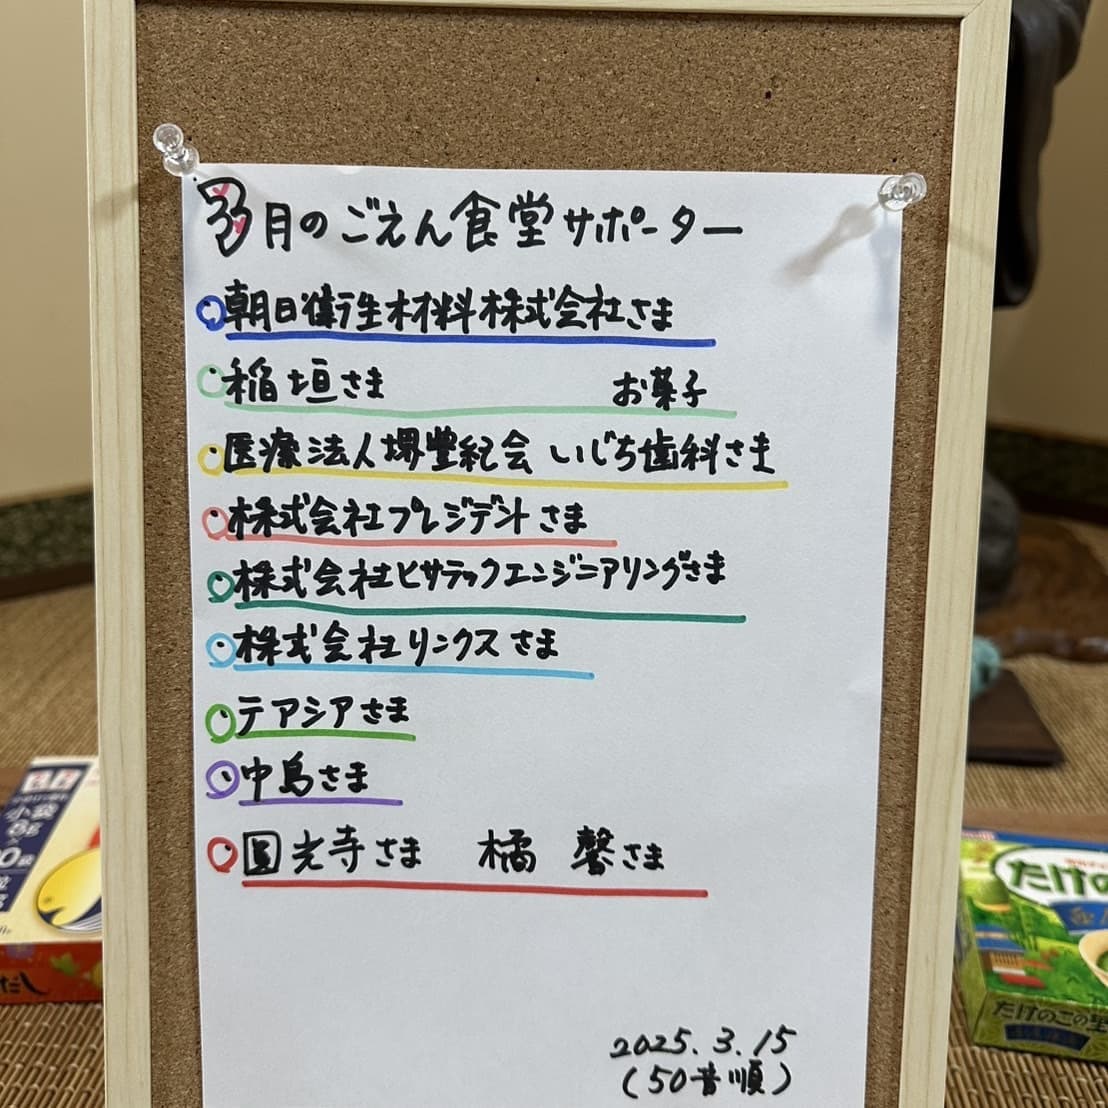 3月のごえん食堂サポーター
朝日衛生材料株式会社さま
稲垣さま お菓子
医療法人堺豊紀会 いじち歯科さま
株式会社プレジデントさま
株式会社ヒサテックエンジニアリングさま
株式会社リンクスさま
テアシアさま
中島さま
圓光寺さま 橘 馨さま
2025.3.15
(50音順)
小袋
だし
たけの
たけのこの里